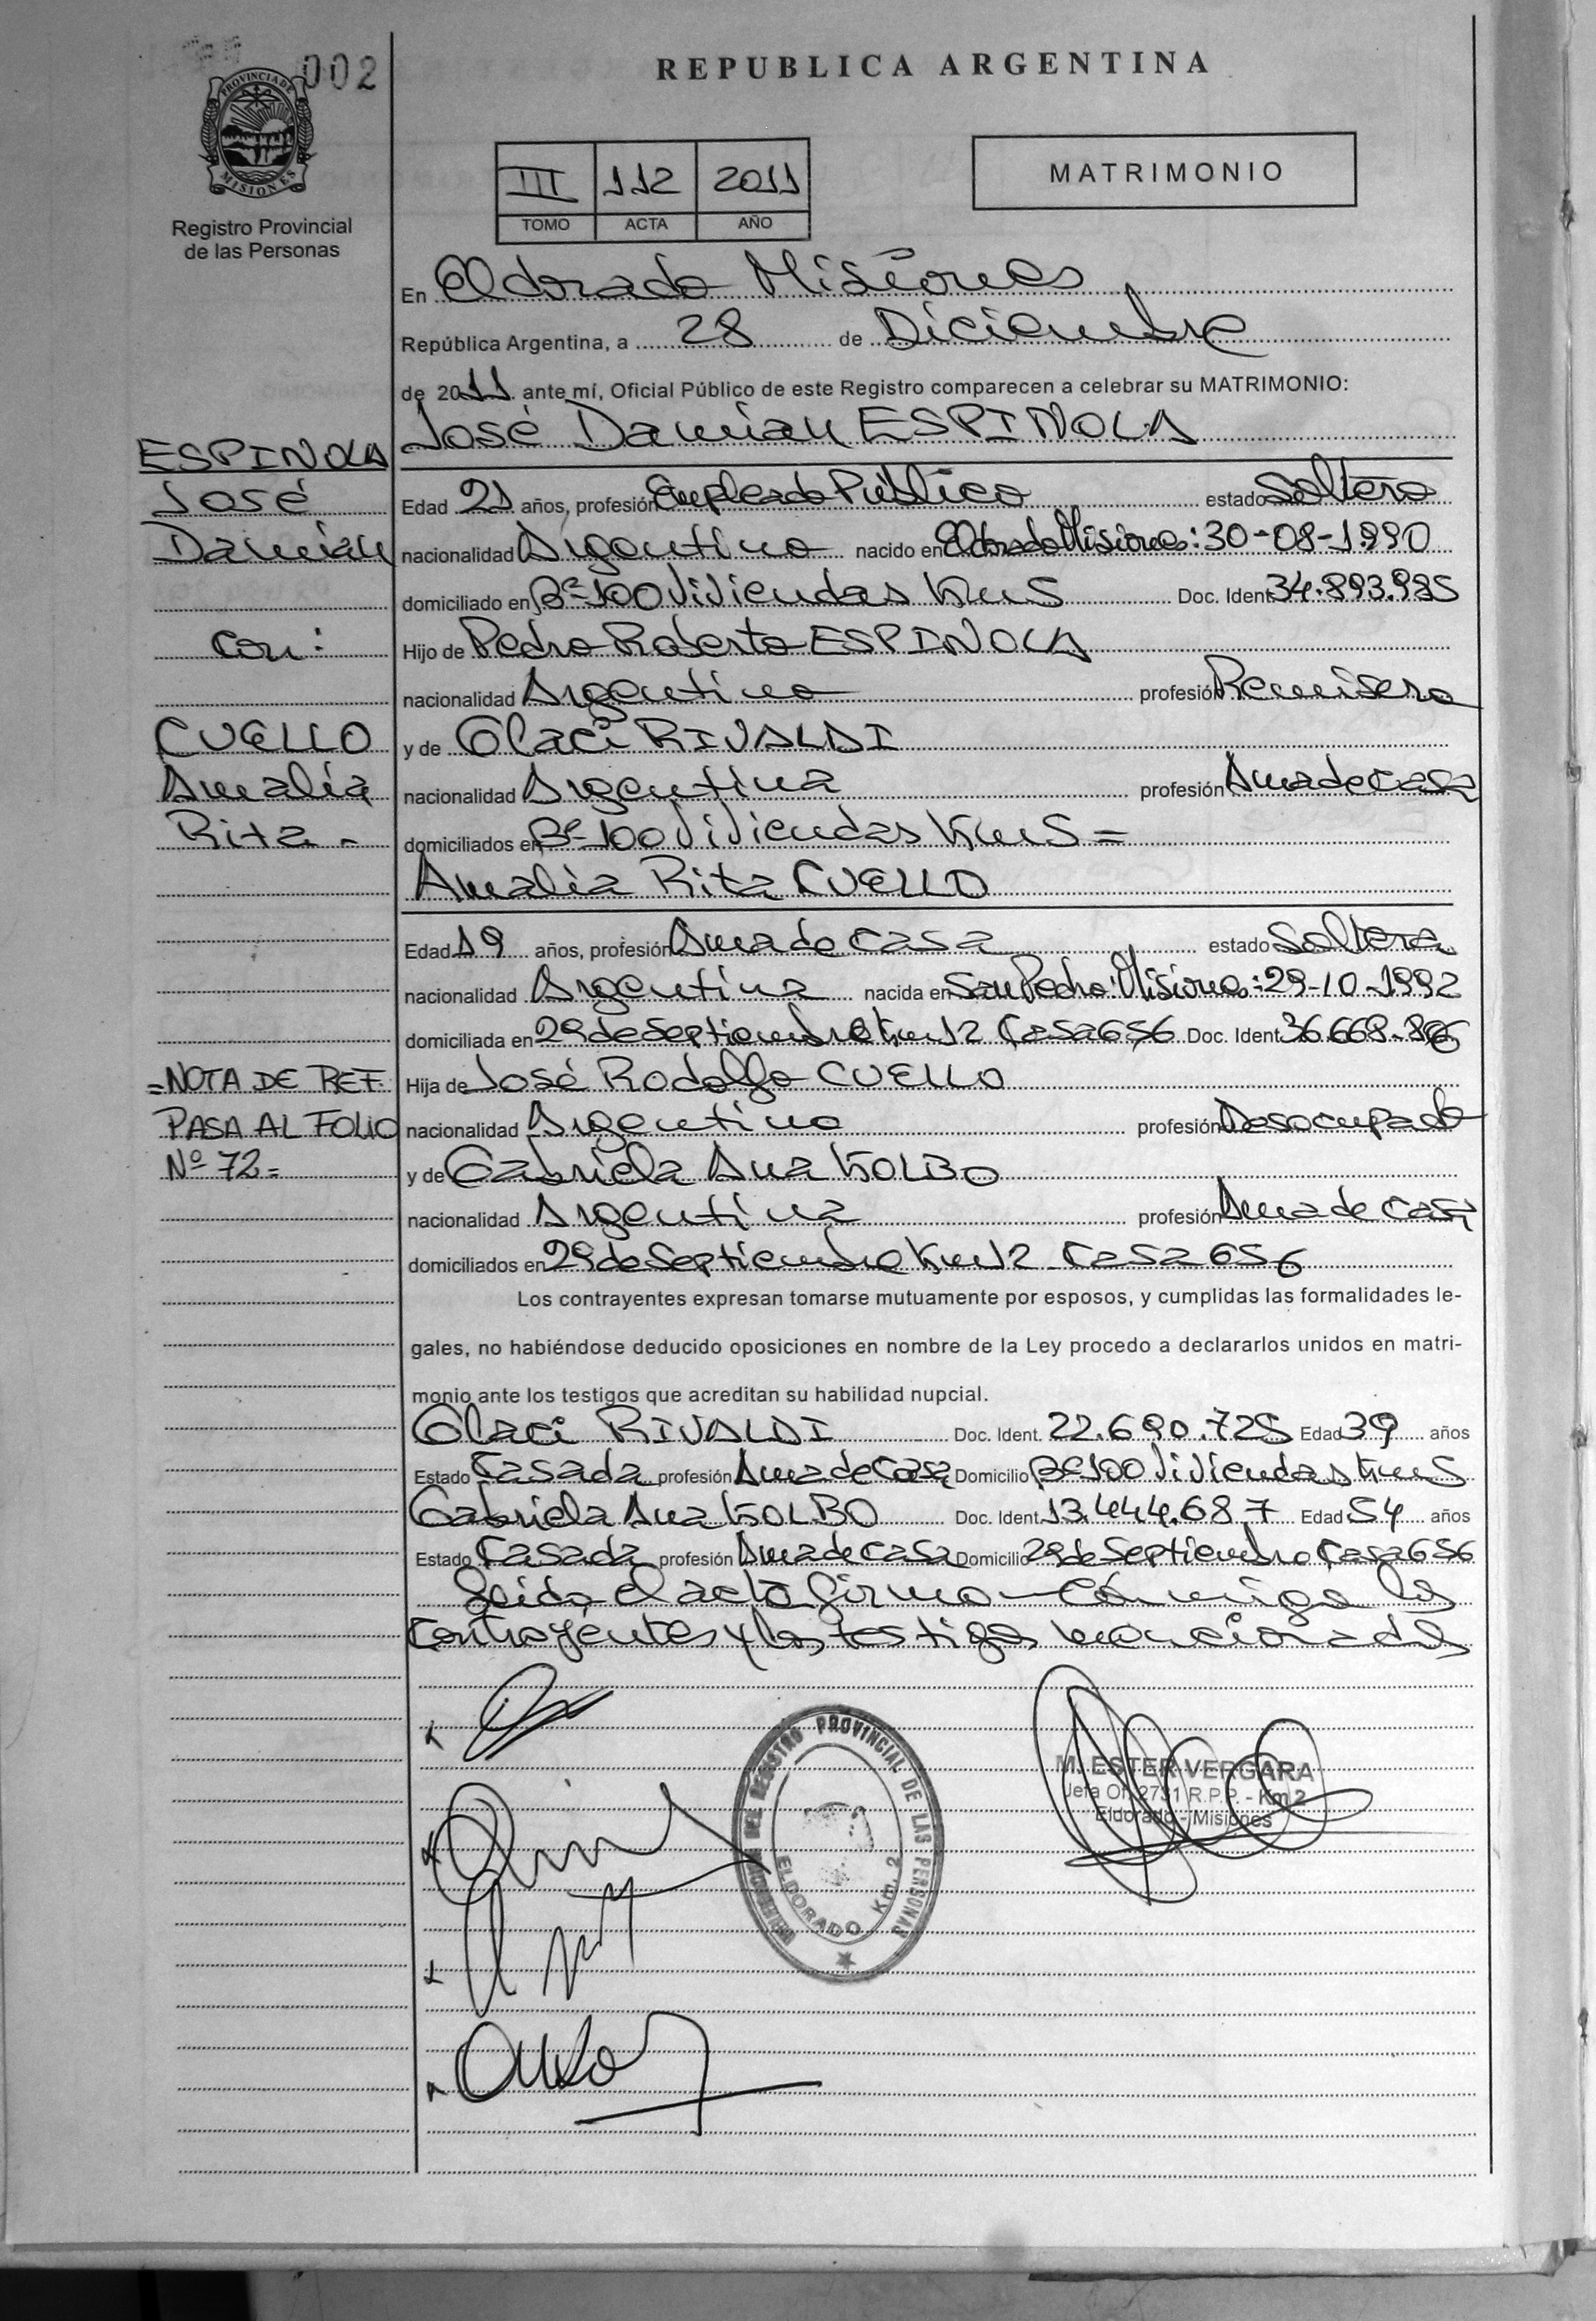 002
PROVINCIA DE
MISIONES
Registro Provincial
de las Personas
REPUBLICA ARGENTINA
III 112 2011
TOMO ACTA AÑO
MATRIMONIO
En Eldorado Misiones
República Argentina, a 28 de Diciembre
de 2011 ante mí, Oficial Público de este Registro comparecen a celebrar su MATRIMONIO:
José Damian ESPINOLA
ESPINOLA
José
Damian
con:
CUELLO
Amalia
Rita -
=NOTA DE REF.
PASA AL FOLIO
Nº 72=
Edad 21 años, profesión Empleado Público estado Soltero
nacionalidad Argentino nacido en Eldorado Misiones: 30-08-1990
domiciliado en Bº 100 Viviendas Km 5 Doc. Ident. 34.893.985
Hijo de Pedro Roberto ESPINOLA
nacionalidad Argentino profesión Remisero
y de Glaci RIVALDI
nacionalidad Argentina profesión Ama de casa
domiciliados en Bº 100 Viviendas Km 5 =
Amalia Rita CUELLO
Edad 19 años, profesión Ama de casa estado Soltera
nacionalidad Argentina nacida en San Pedro: Misiones: 29-10-1992
domiciliada en 29 de Septiembre Km 2 Casa 656 Doc. Ident. 36.668.
Hija de José Rodolfo CUELLO
nacionalidad Argentino profesión Desocupado
y de Gabriela Ana KOLBO
nacionalidad Argentina profesión Ama de casa
domiciliados en 29 de Septiembre Km 2 Casa 656
Los contrayentes expresan tomarse mutuamente por esposos, y cumplidas las formalidades le-
gales, no habiéndose deducido oposiciones en nombre de la Ley procedo a declararlos unidos en matri-
monio ante los testigos que acreditan su habilidad nupcial.
Glaci RIVALDI Doc. Ident. 22.690.725 Edad 39 años
Estado Casada profesión Ama de Casa Domicilio Bº 100 Viviendas Km 5
Gabriela Ana KOLBO Doc. Ident. 13.444.687 Edad 54 años
Estado Casada profesión Ama de casa Domicilio 29 de Septiembre Casa 656
Leido el acta firman conmigo los
contrayentes y los testigos mencionados
DEL REGISTRO PROVINCIAL DE LAS PERSONAS
ELDORADO Km. 2
M. ESTER VERGARA
Jefa Of. 2731 R.P.P. - Km 2
Eldorado - Misiones